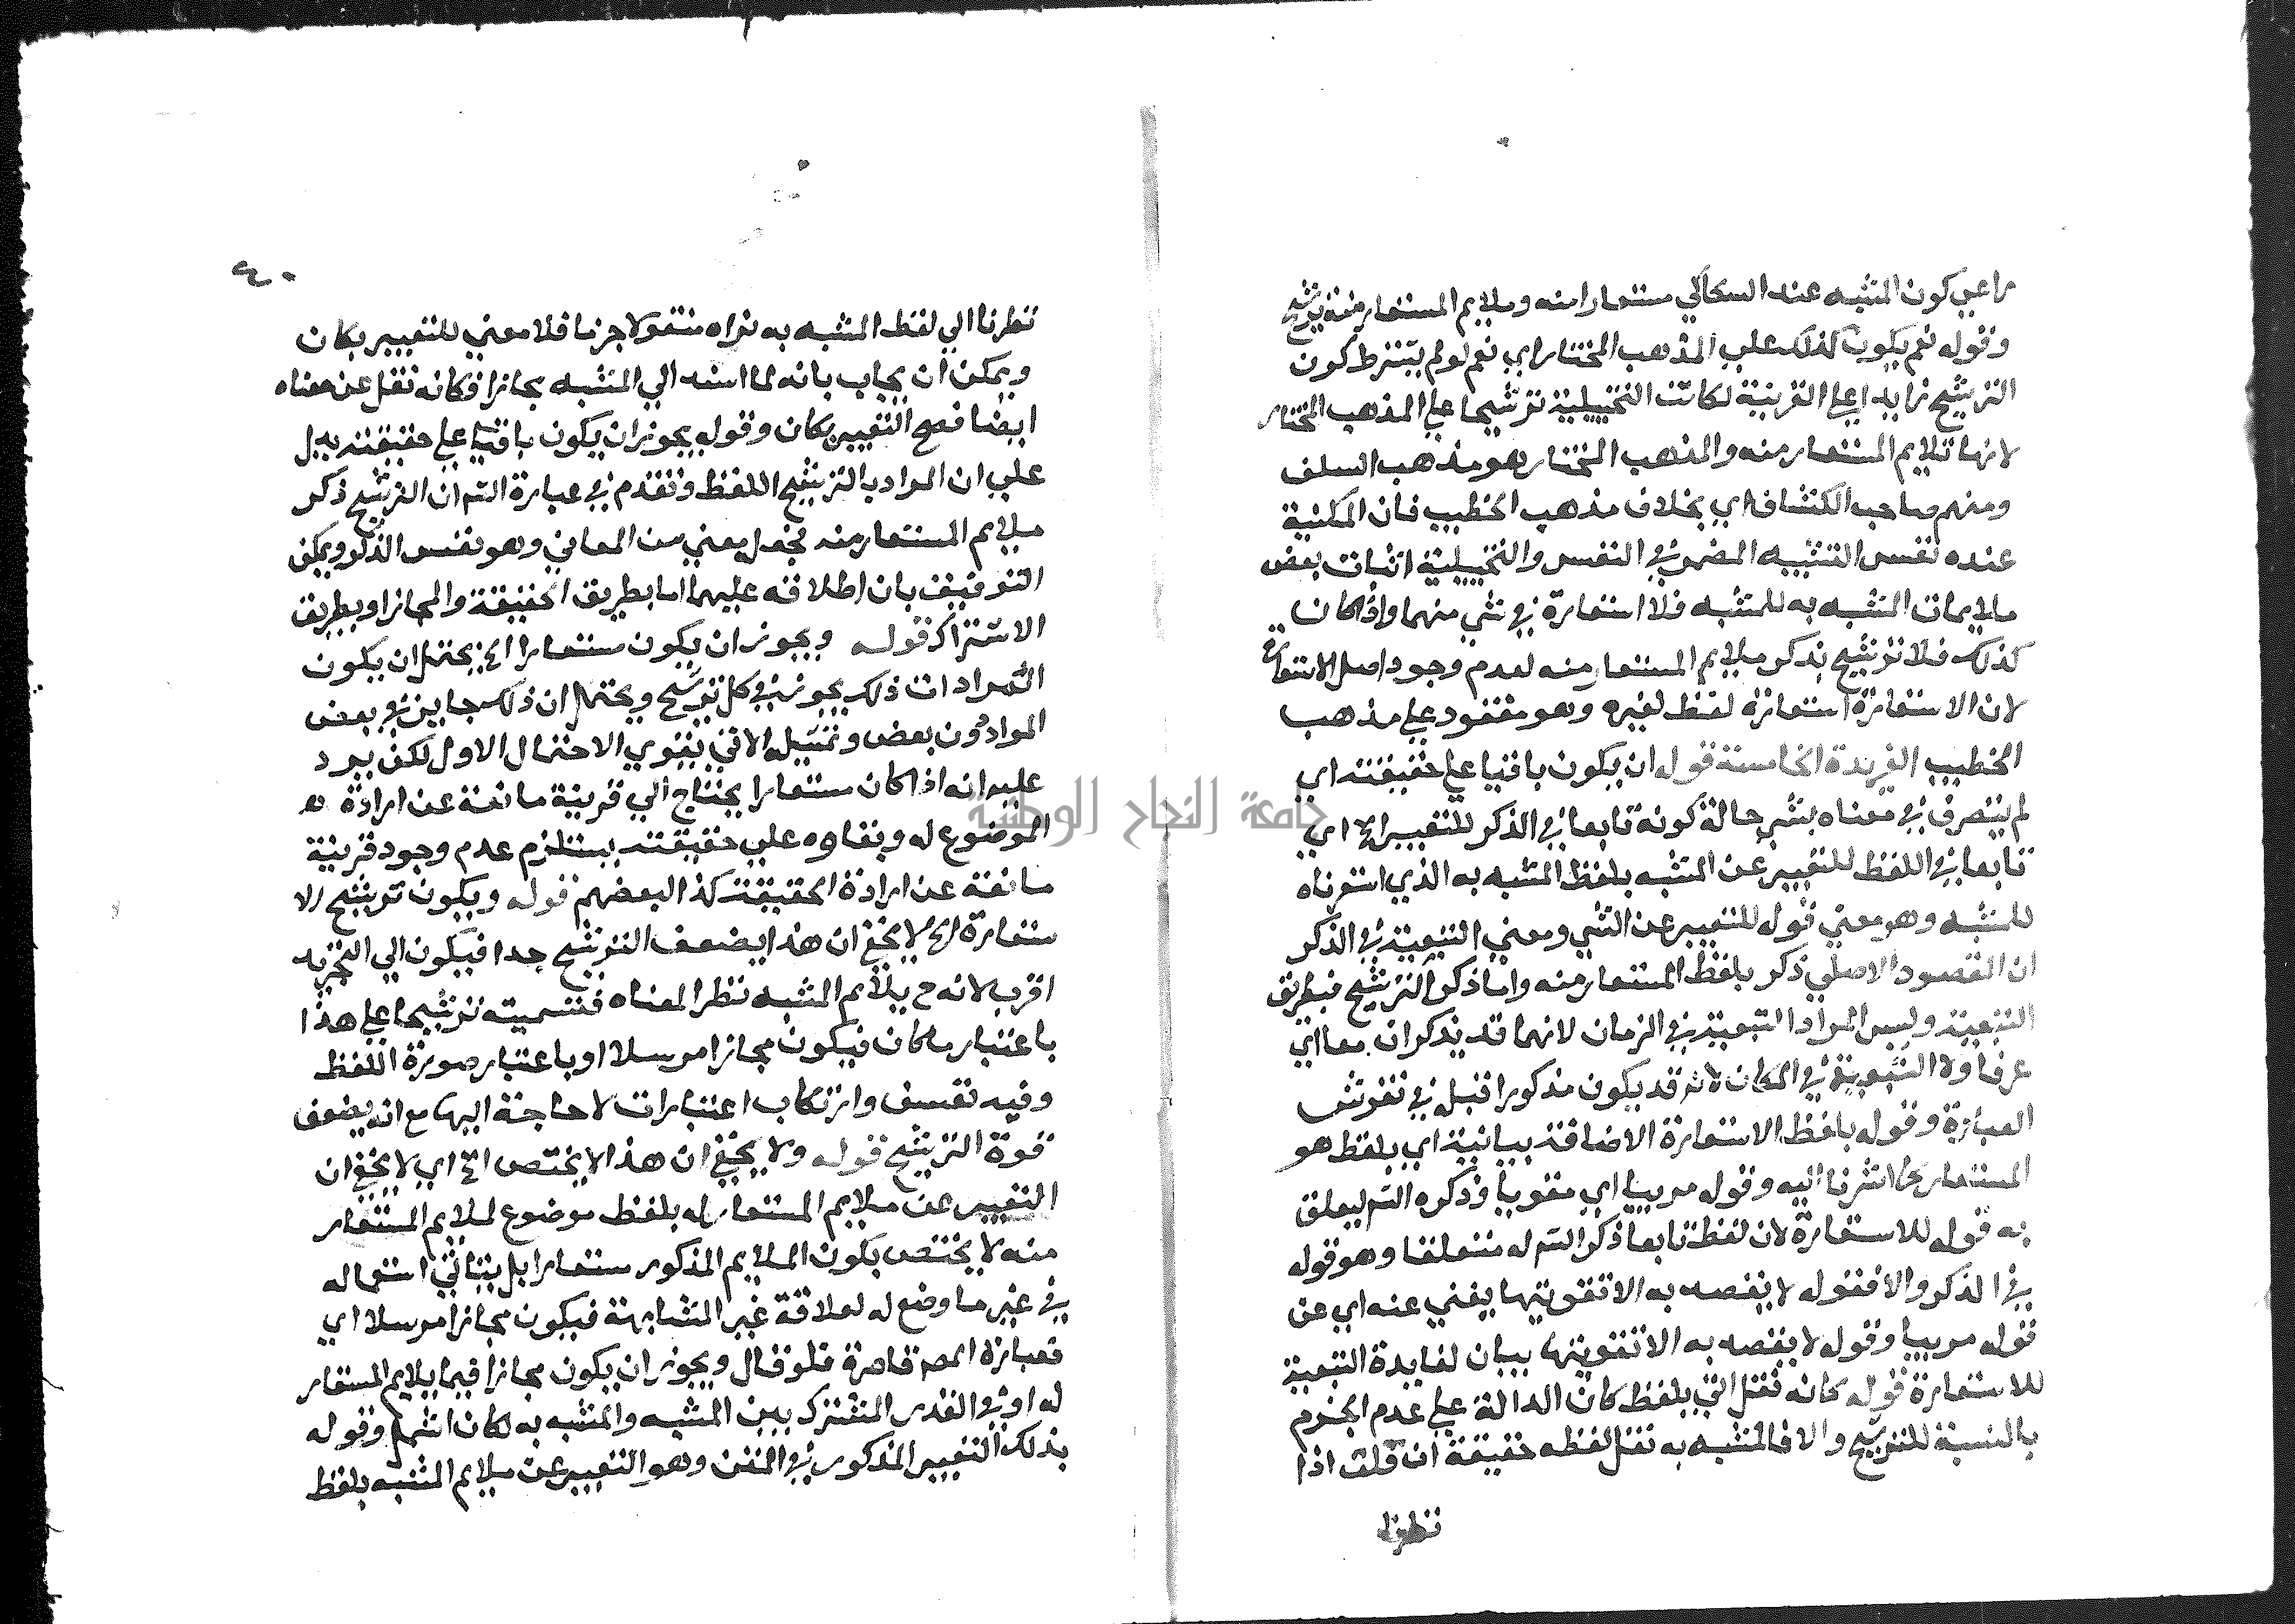 راعي كون المشبه عند السكاكي مستعارا منه وملايم المستعار منه ترشيح
وقوله نعم يكون كذلك علي المذهب المختار اي نعم لو لم يشترط كون
الترشيح زايدا علي القرينة لكانت التخييلية ترشيحا علي المذهب المختار
لانها تلايم المستعار منه والمذهب المختار هو مذهب السلف
ومنهم صاحب الكشاف اي بخلاف مذهب الخطيب فان المكنية
عنده نفس التشبيه المضمر في النفس والتخييلية اثبات بعض
ملايمات المشبه به للمشبه فلا استعارة في شي منهما واذا كان
كذلك فلا ترشيح بذكر ملايم المستعار منه لعدم وجود اصل الاستعارة
لان الاستعارة استعارة لفظ لغيره وهو مفقود علي مذهب
الخطيب الفريدة الخامسة قوله ان يكون باقيا علي حقيقته اي
لم يتصرف في معناه بشي حالة كونه تابعا في الذكر للتعبير الخ اي
تابعا في اللفظ للتعبير عن المشبه بلفظ المشبه به الذي استعرناه
للمشبه وهو معني قوله للتعبير عن الشي ومعني التبعية في الذكر
ان المقصود الاصلي ذكر بلفظ المستعار منه واما ذكر الترشيح فبطريق
التبعية وليس المراد التبعية في الزمان لانهما قد يذكران معا اي
عرفا ولا التبعية في المكان لانه قد يكون مذكورا قبل في نقوش
العبارة وقوله بلفظ الاستعارة الاضافة بيانية اي بلفظ هو
المستعار كما اشرنا اليه وقوله مربيا اي مقويا وذكره الشم ليعلق
به قوله للاستعارة لان لفظ تابعا ذكر الشم له متعلقا وهو قوله
في الذكر والا فقوله لا يقصد به الا تقويتها يغني عنه اي عن
قوله مربيا وقوله لا يقصد به الا تقويتها بيان لفايدة التبعية
للاستعارة قوله كانه نقل اتي بلفظ كان الدالة علي عدم الجزم
بالنسبة للترشيح والا فالمشبه به نقل لفظه حقيقة ان قلت اذا
نظرنا
٤٠
نظرنا الي لفظ المشبه به نراه منقولا جزما فلا معني للتعبير بكان
ويمكن ان يجاب بانه لما اسند الي المشبه مجازا فكانه نقل عن معناه
ايضا فصح التعبير بكان وقوله يجوز ان يكون باقيا علي حقيقته يدل
علي ان المراد بالترشيح اللفظ وتقدم في عبارة الشم ان الترشيح ذكر
ملايم المستعار منه فجعل معني من المعاني وهو نفس الذكر ويمكن
التوفيق بان اطلاقه عليهما اما بطريق الحقيقة والمجاز او بطريق
الاشتراك قوله ويجوز ان يكون مستعارا الخ يحتمل ان يكون
المراد ان ذلك يجوز في كل ترشيح ويحتمل ان ذلك جايز في بعض
المواد دون بعض وتمثيله الاتي يقوي الاحتمال الاول لكن يرد
عليه انه اذا كان مستعارا يحتاج الي قرينة مانعة عن ارادة
الموضوع له وبقاوه علي حقيقته يستلزم عدم وجود قرينة
مانعة عن ارادة الحقيقة كذا لبعضهم قوله ويكون ترشيح الا
ستعارة الخ لا يخفي ان هذا يضعف الترشيح جدا فيكون الي التجريد
اقرب لانه ح يلايم المشبه نظرا لمعناه فتسميته ترشيحا علي هذا
باعتبار ما كان فيكون مجازا مرسلا او باعتبار صورة اللفظ
وفيه تعسف وارتكاب اعتبارات لا حاجة اليها مع انه يضعف
قوة الترشيح قوله ولا يخفي ان هذا لا يختص الخ اي لا يخفي ان
التعبير عن ملايم المستعار له بلفظ موضوع لملايم المستعار
منه لا يختص بكون الملايم المذكور مستعارا بل يتاتي استعماله
في غير ما وضع له لعلاقة غير المشابهة فيكون مجازا مرسلا اي
فعبارة المصم قاصرة فلو قال ويجوز ان يكون مجازا فيما يلايم المستعار
له او في القدر المشترك بين المشبه والمشبه به لكان اشمل وقوله
بذلك التعبير المذكور في المتن وهو التعبير عن ملايم المشبه بلفظ
جامعة النجاح الوطنية